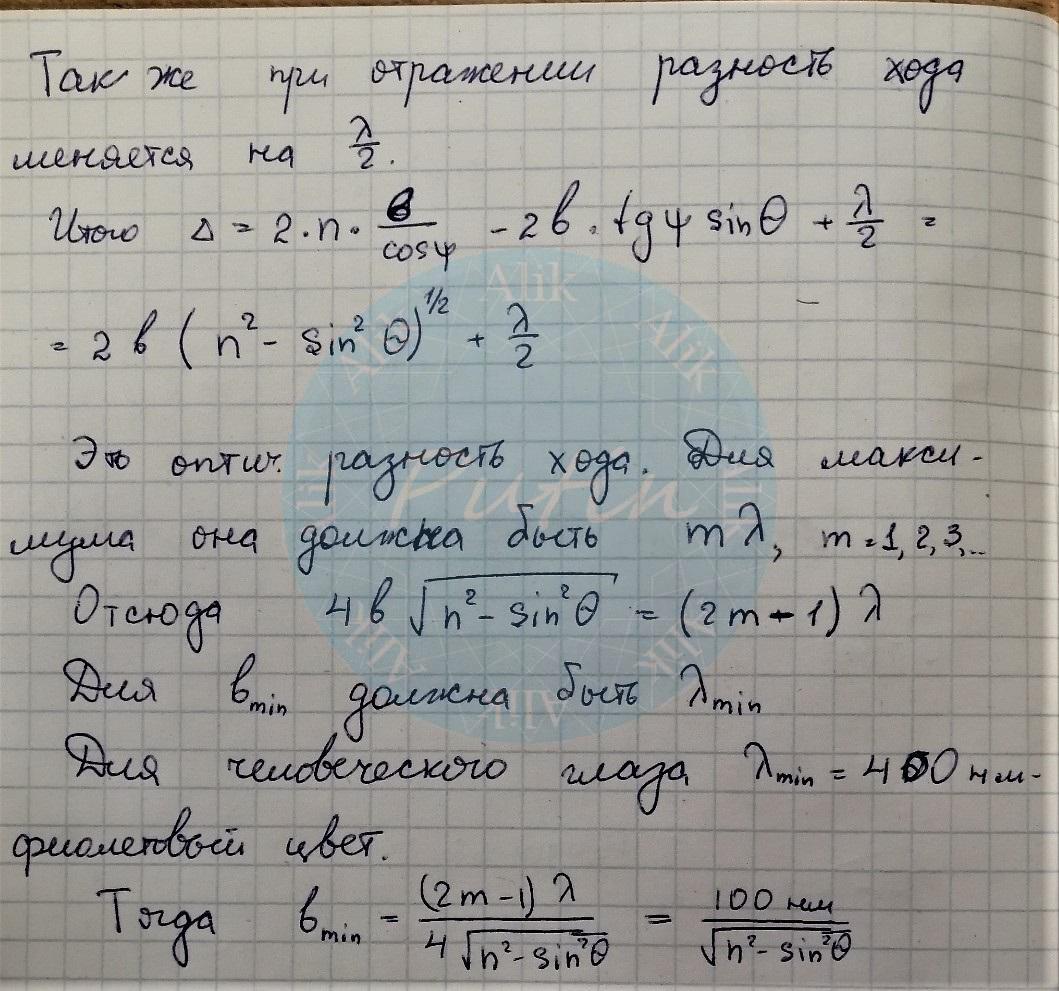 Так же при отражении разность хода
меняется на λ/2.
Итого Δ = 2·n· в/cosψ - 2в · tgψ sinθ + λ/2 =
= 2в (n² - sin²θ)^1/2 + λ/2
Это оптич. разность хода. Для макси-
мума она должна быть mλ, m=1,2,3,..
Отсюда 4в √(n² - sin²θ) = (2m-1) λ
Для вmin должна быть λmin
Для человеческого глаза λmin = 400 нм-
фиолетовый цвет.
Тогда вmin = (2m-1) λ / 4√(n²-sin²θ) = 100 нм / √(n²-sin²θ)
Alik
Alik
Alik
Alik
Alik
Alik
Alik
Alik
Putin